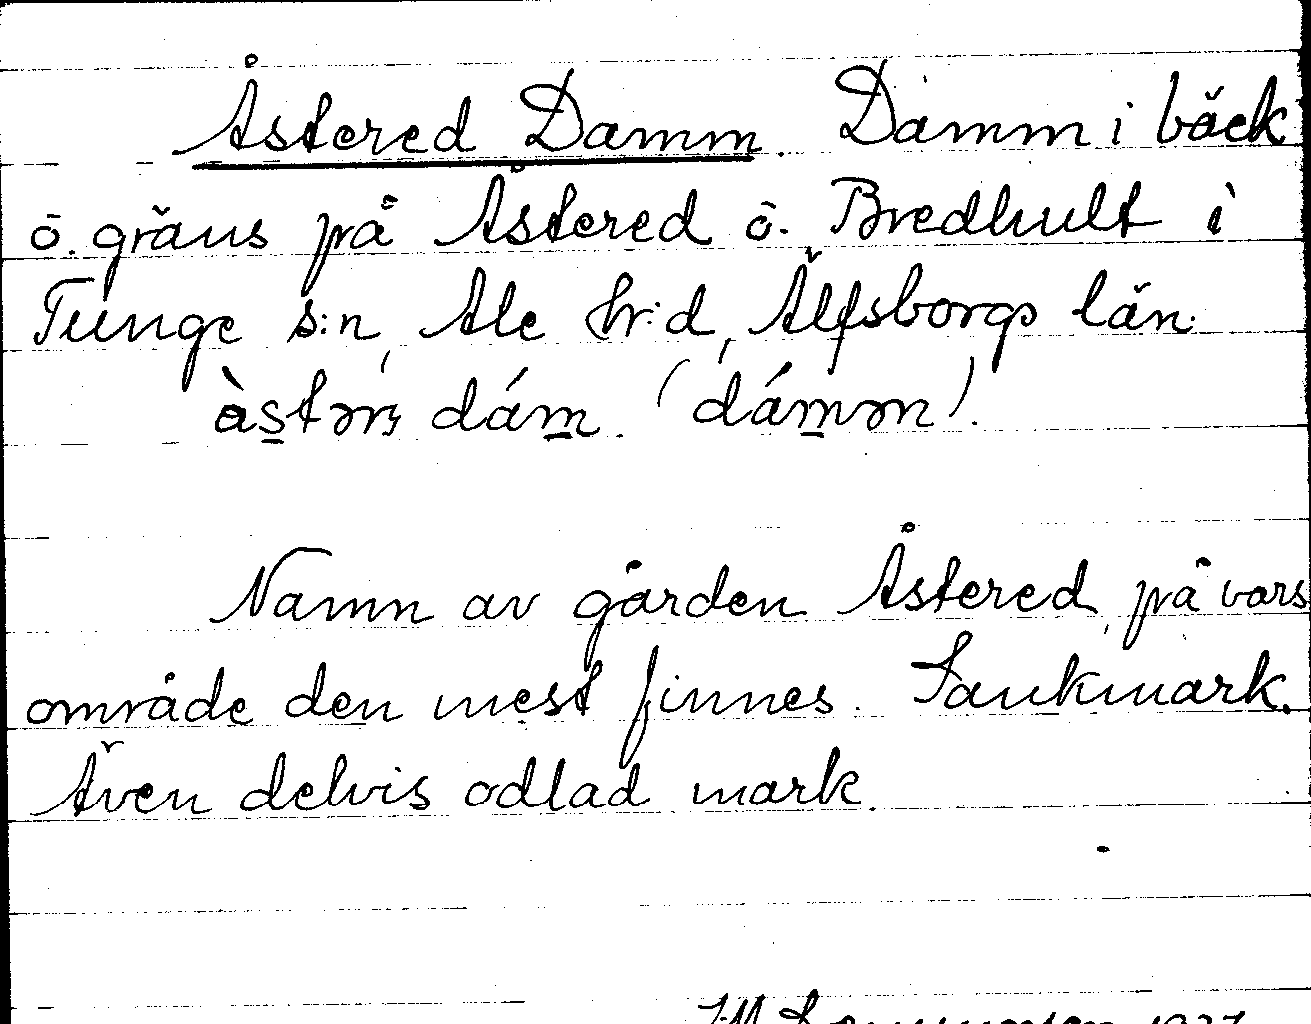 Åstered Damm. Damm i bäck
ö. gräns på Åstered ö. Bredhult i
Tunge s:n, Ale hr:d, Älfsborgs län.
àstərꝫ dám. (dámən).
Namn av gården Åstered, på vars
område den mest finnes. Sankmark.
Även delvis odlad mark.